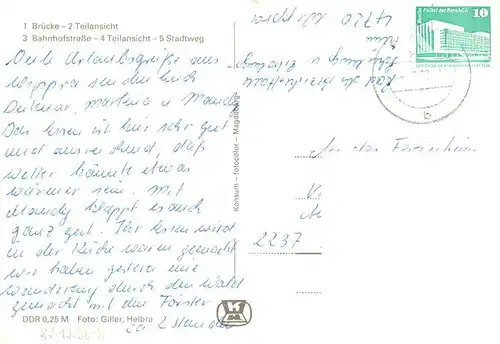 1 Brücke – 2 Teilansicht
3 Bahnhofstraße – 4 Teilansicht – 5 Stadtweg
Viele Urlaubsgrüße aus
Wippra senden Euch
Dietmar, Martina u Mandy
Das Essen ist hier sehr gut
und ausreichend, daß
Wetter könnte etwas
wärmer sein. Mit
Mandy klappt es auch
ganz gut. Ihr Essen wird
in der Küche warm gemacht
wir haben gestern eine
Wanderung durch den Wald
gemacht mit dem Förster
ca 2 Stunden
DDR 0,25 M Foto: Giller, Helbra
Konsum – fotocolor – Magdeburg
4720 Wippra
Heim
Palast der Republik
10
b
An der
2237